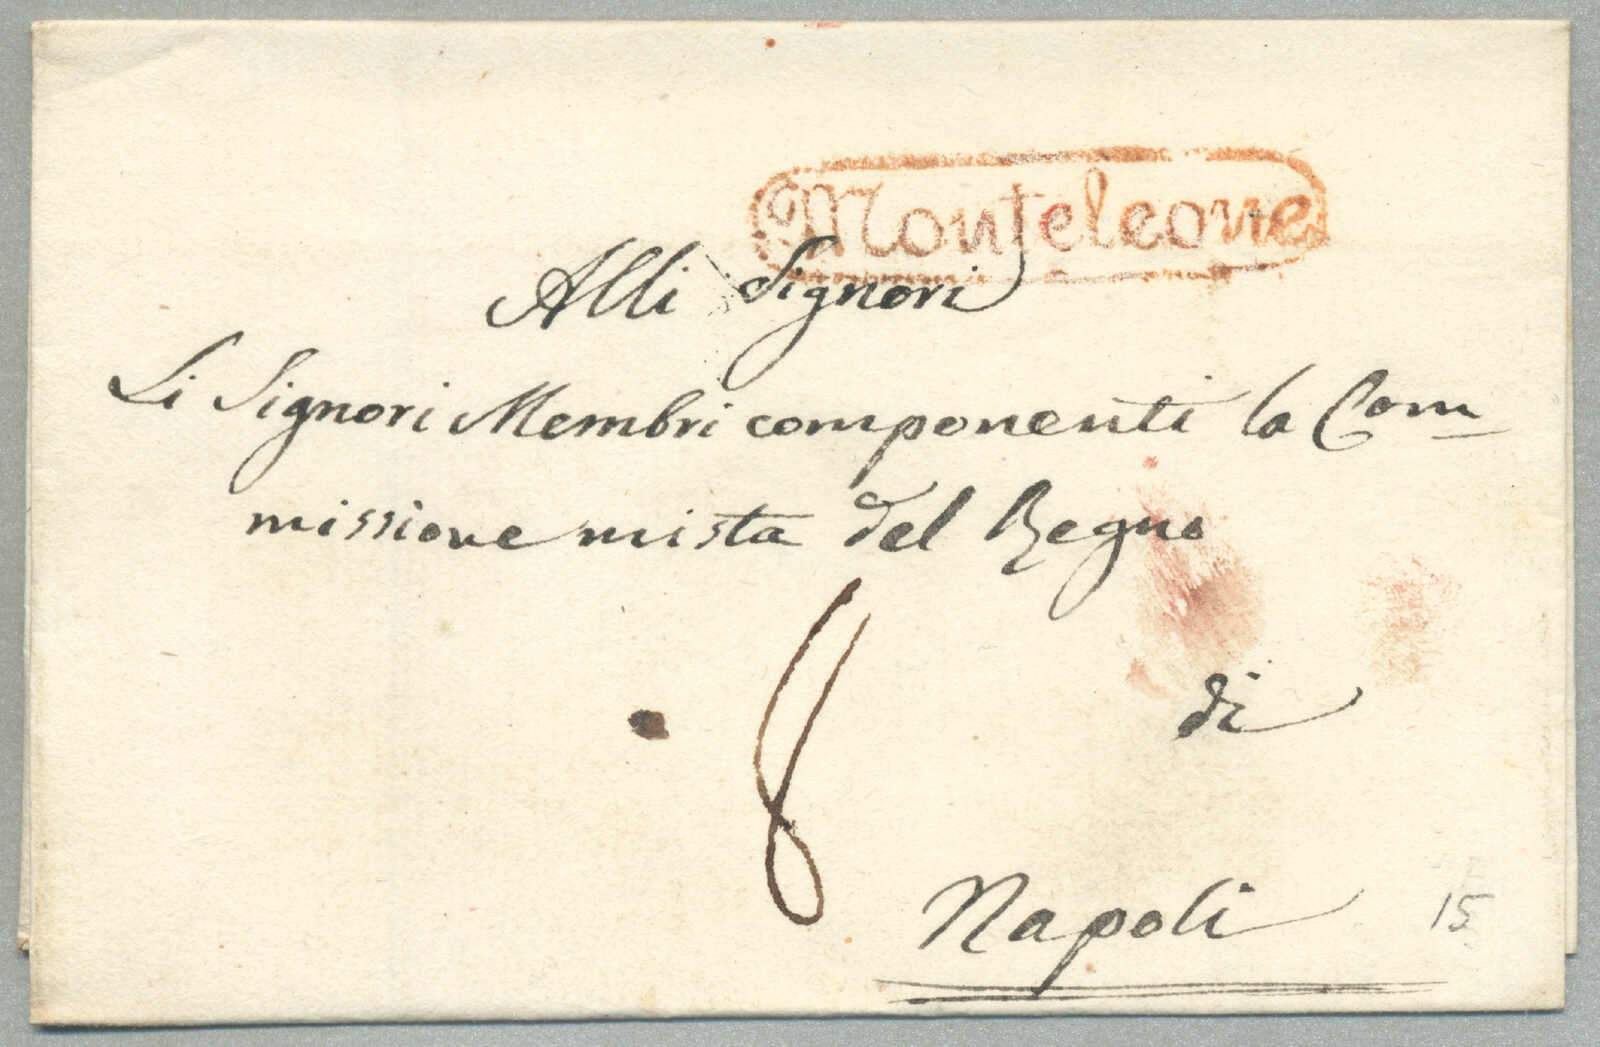 Monteleone
Alli Signori
Li Signori Membri componenti la Com
missione mista del Regno
8
di
Napoli
15